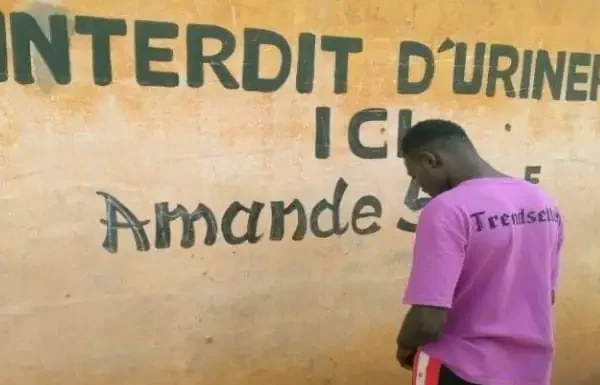 INTERDIT D'URINER
ICI
Amande 5 F
Trendsell